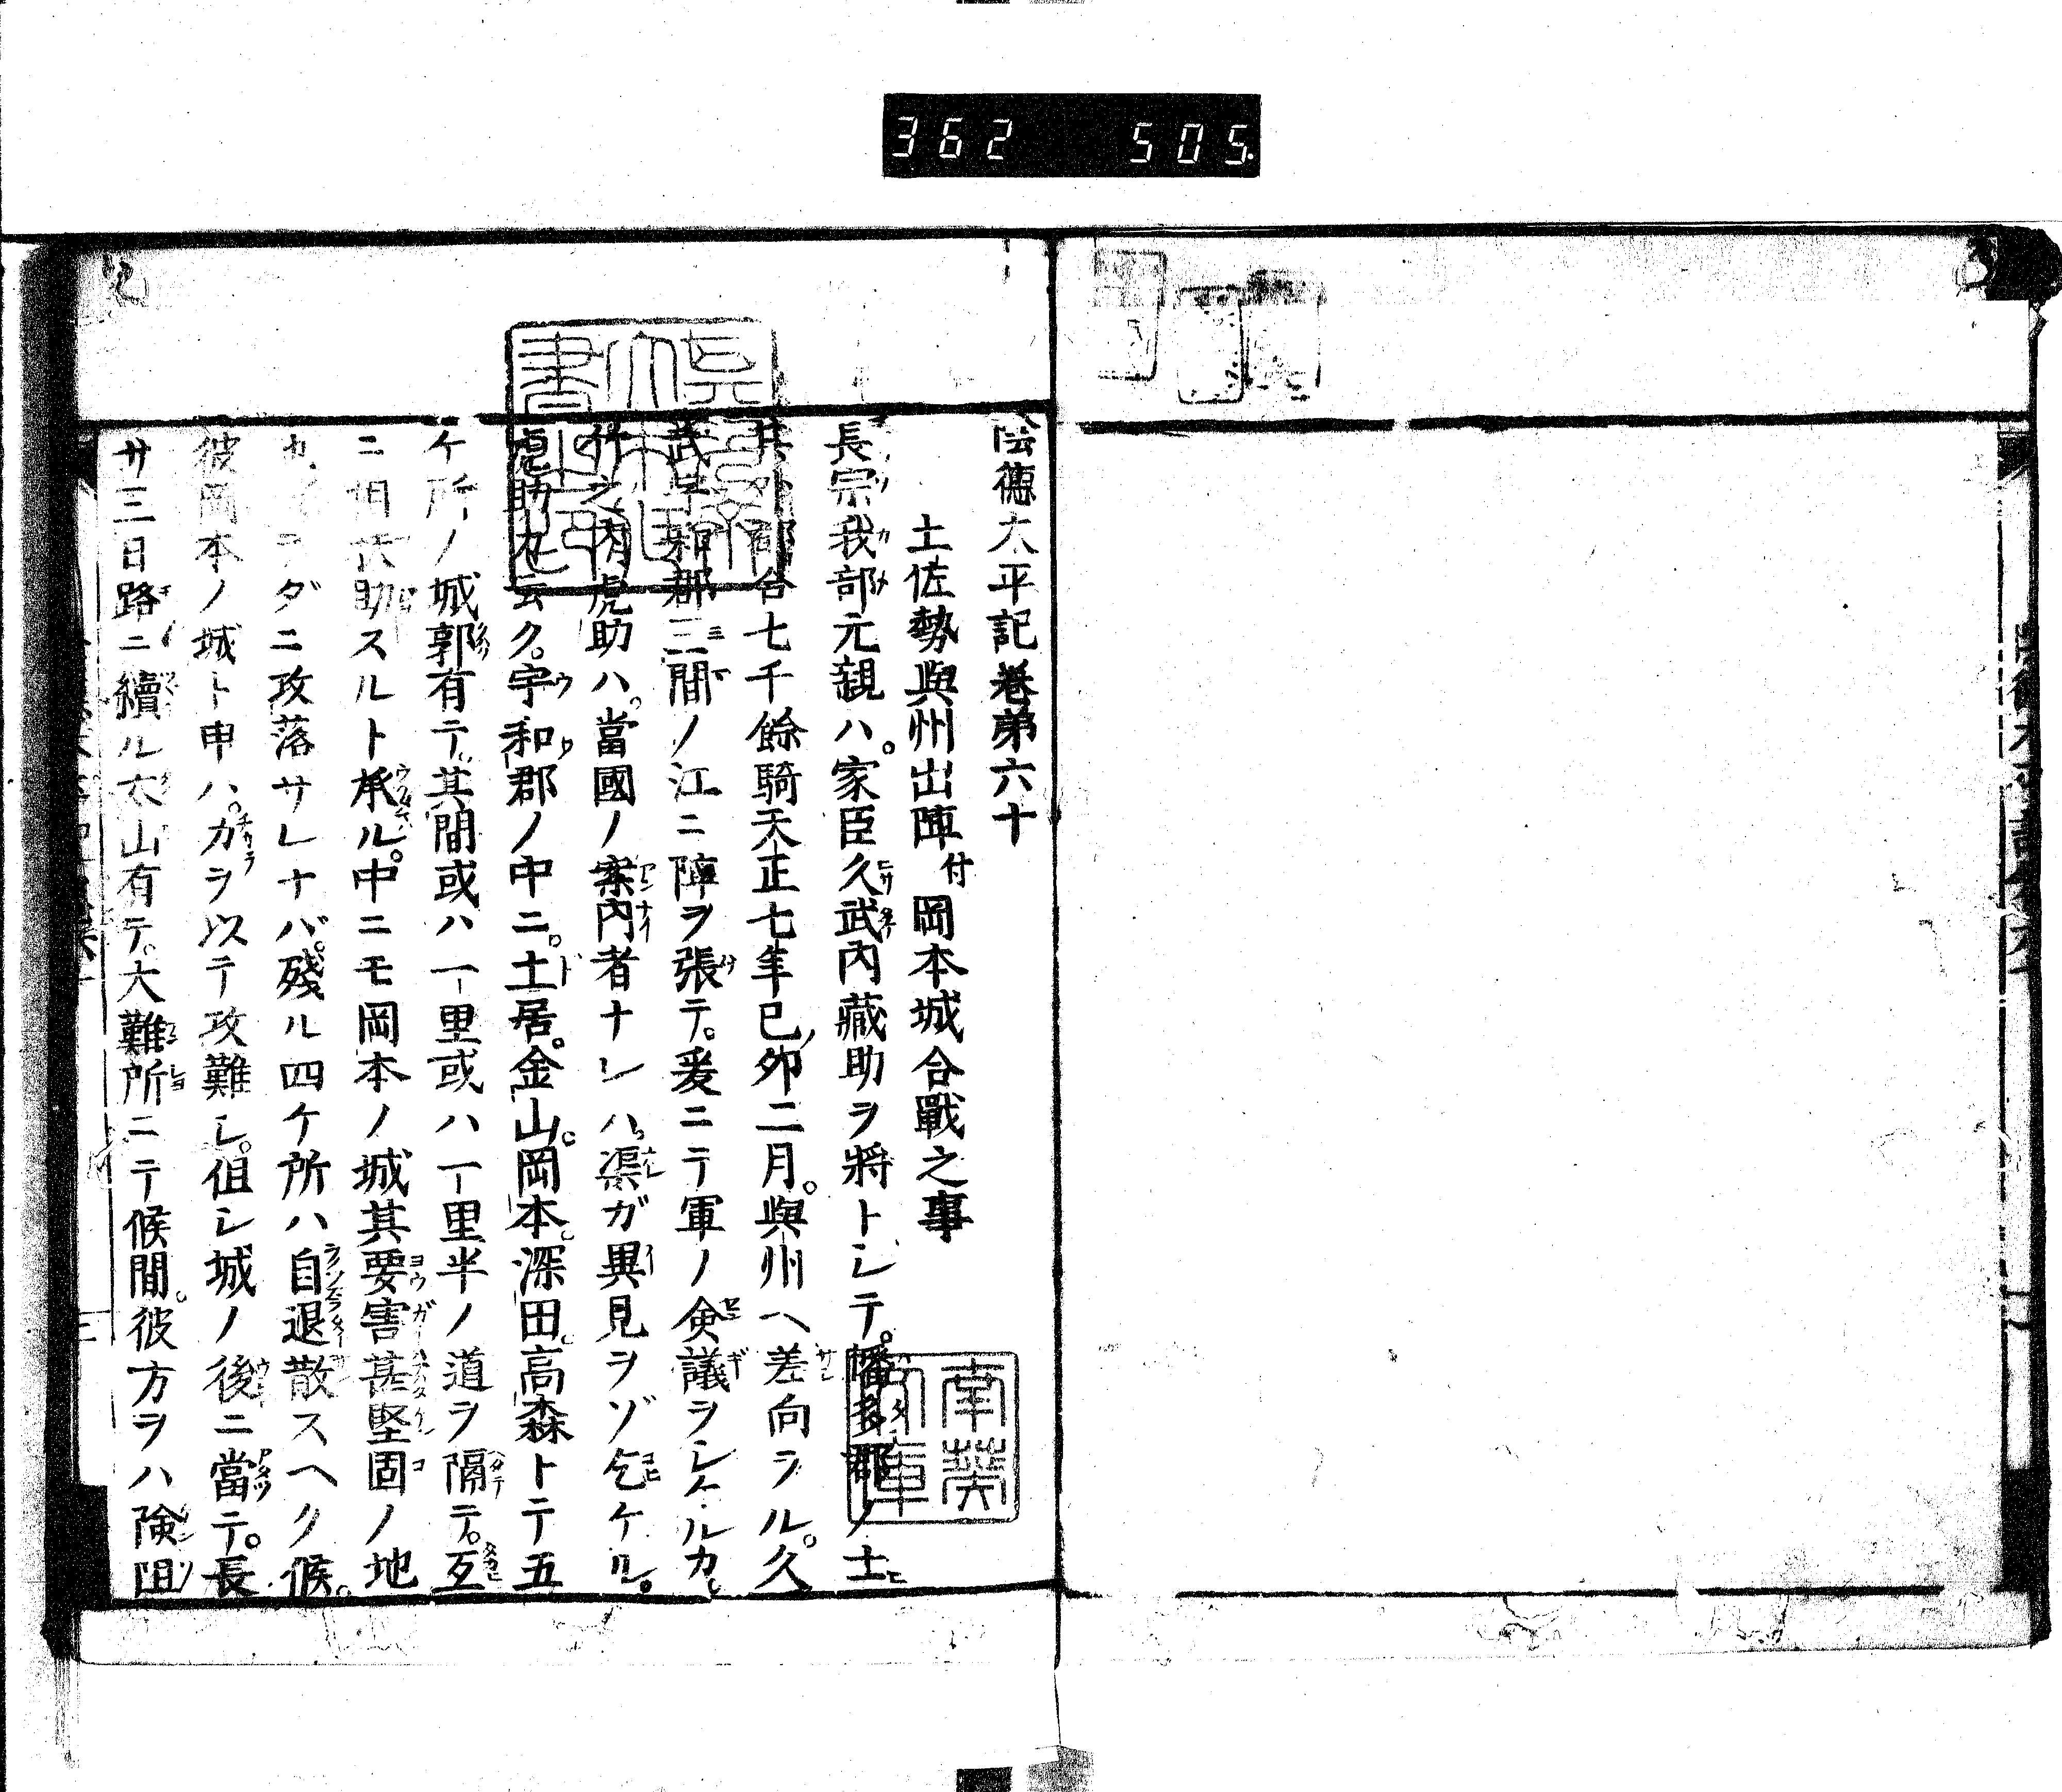 362 505
陰德太平記卷弟六十
土佐勢與州出陣付岡本城合戰之事
長宗我部元親ハ。家臣久武內藏助ヲ將トシテ。幡多郡ノ士
其外都合七千餘騎天正七年己夘二月。與州ヘ差向ラル。久
武早郡三間ノ江ニ陣ヲ張テ。爰ニテ軍ノ僉議ヲシケルカ。
竹之內虎助ハ。當國ノ案內者ナレハ。渠ガ異見ヲゾ乞ケル。
虎助カ云ク。宇和郡ノ中ニ。土居。金山。岡本。深田。高森トテ五
ケ所ノ城郭有テ。其間或ハ一里或ハ一里半ノ道ヲ隔テ。互
ニ相共助スルト承ル。中ニモ岡本ノ城其要害甚堅固ノ地
ダニ攻落サレナバ。殘ル四ケ所ハ自退散スヘク候。
彼岡本ノ城ト申ハ。力ヲ以テ攻難シ。但シ城ノ後ニ當テ。長
サ三日路ニ續ル大山有テ。大難所ニテ候間。彼方ヲハ険阻